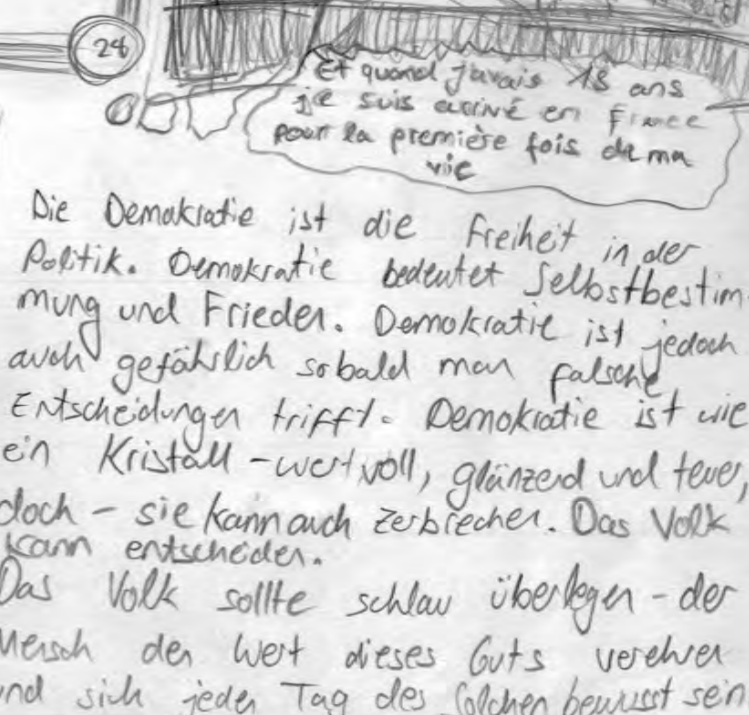 24
Et quand j'avais 18 ans
je suis arrivé en France
pour la première fois de ma
vie
Die Demokratie ist die Freiheit in der
Politik. Demokratie bedeutet Selbstbestim
mung und Frieden. Demokratie ist jedoch
auch gefährlich sobald man falsche
Entscheidungen trifft. Demokratie ist wie
ein Kristall - wertvoll, glänzend und teuer,
doch - sie kann auch zerbrechen. Das Volk
kann entscheiden.
Das Volk sollte schlau überlegen - der
Mensch den Wert dieses Guts verehren
und sich jeden Tag des Solchen bewusst sein